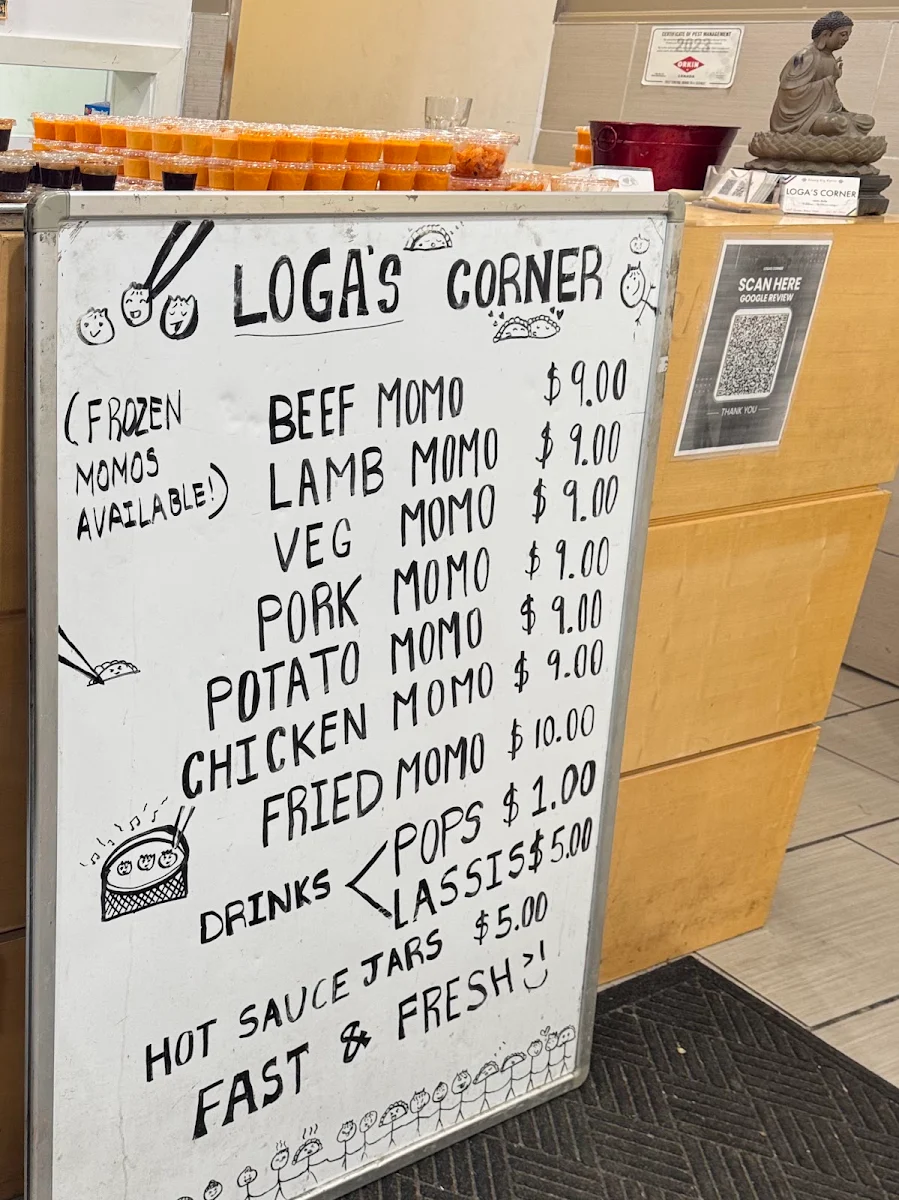 CERTIFICATE OF PEST MANAGEMENT
2023
ORKIN
CANADA
LOGA'S CORNER
SCAN HERE
GOOGLE REVIEW
THANK YOU
LOGA'S CORNER
(FROZEN
MOMOS
AVAILABLE!)
BEEF MOMO $9.00
LAMB MOMO $9.00
VEG MOMO $9.00
PORK MOMO $9.00
POTATO MOMO $9.00
CHICKEN MOMO $9.00
FRIED MOMO $10.00
DRINKS
POPS $1.00
LASSIS $5.00
HOT SAUCE JARS $5.00
FAST & FRESH